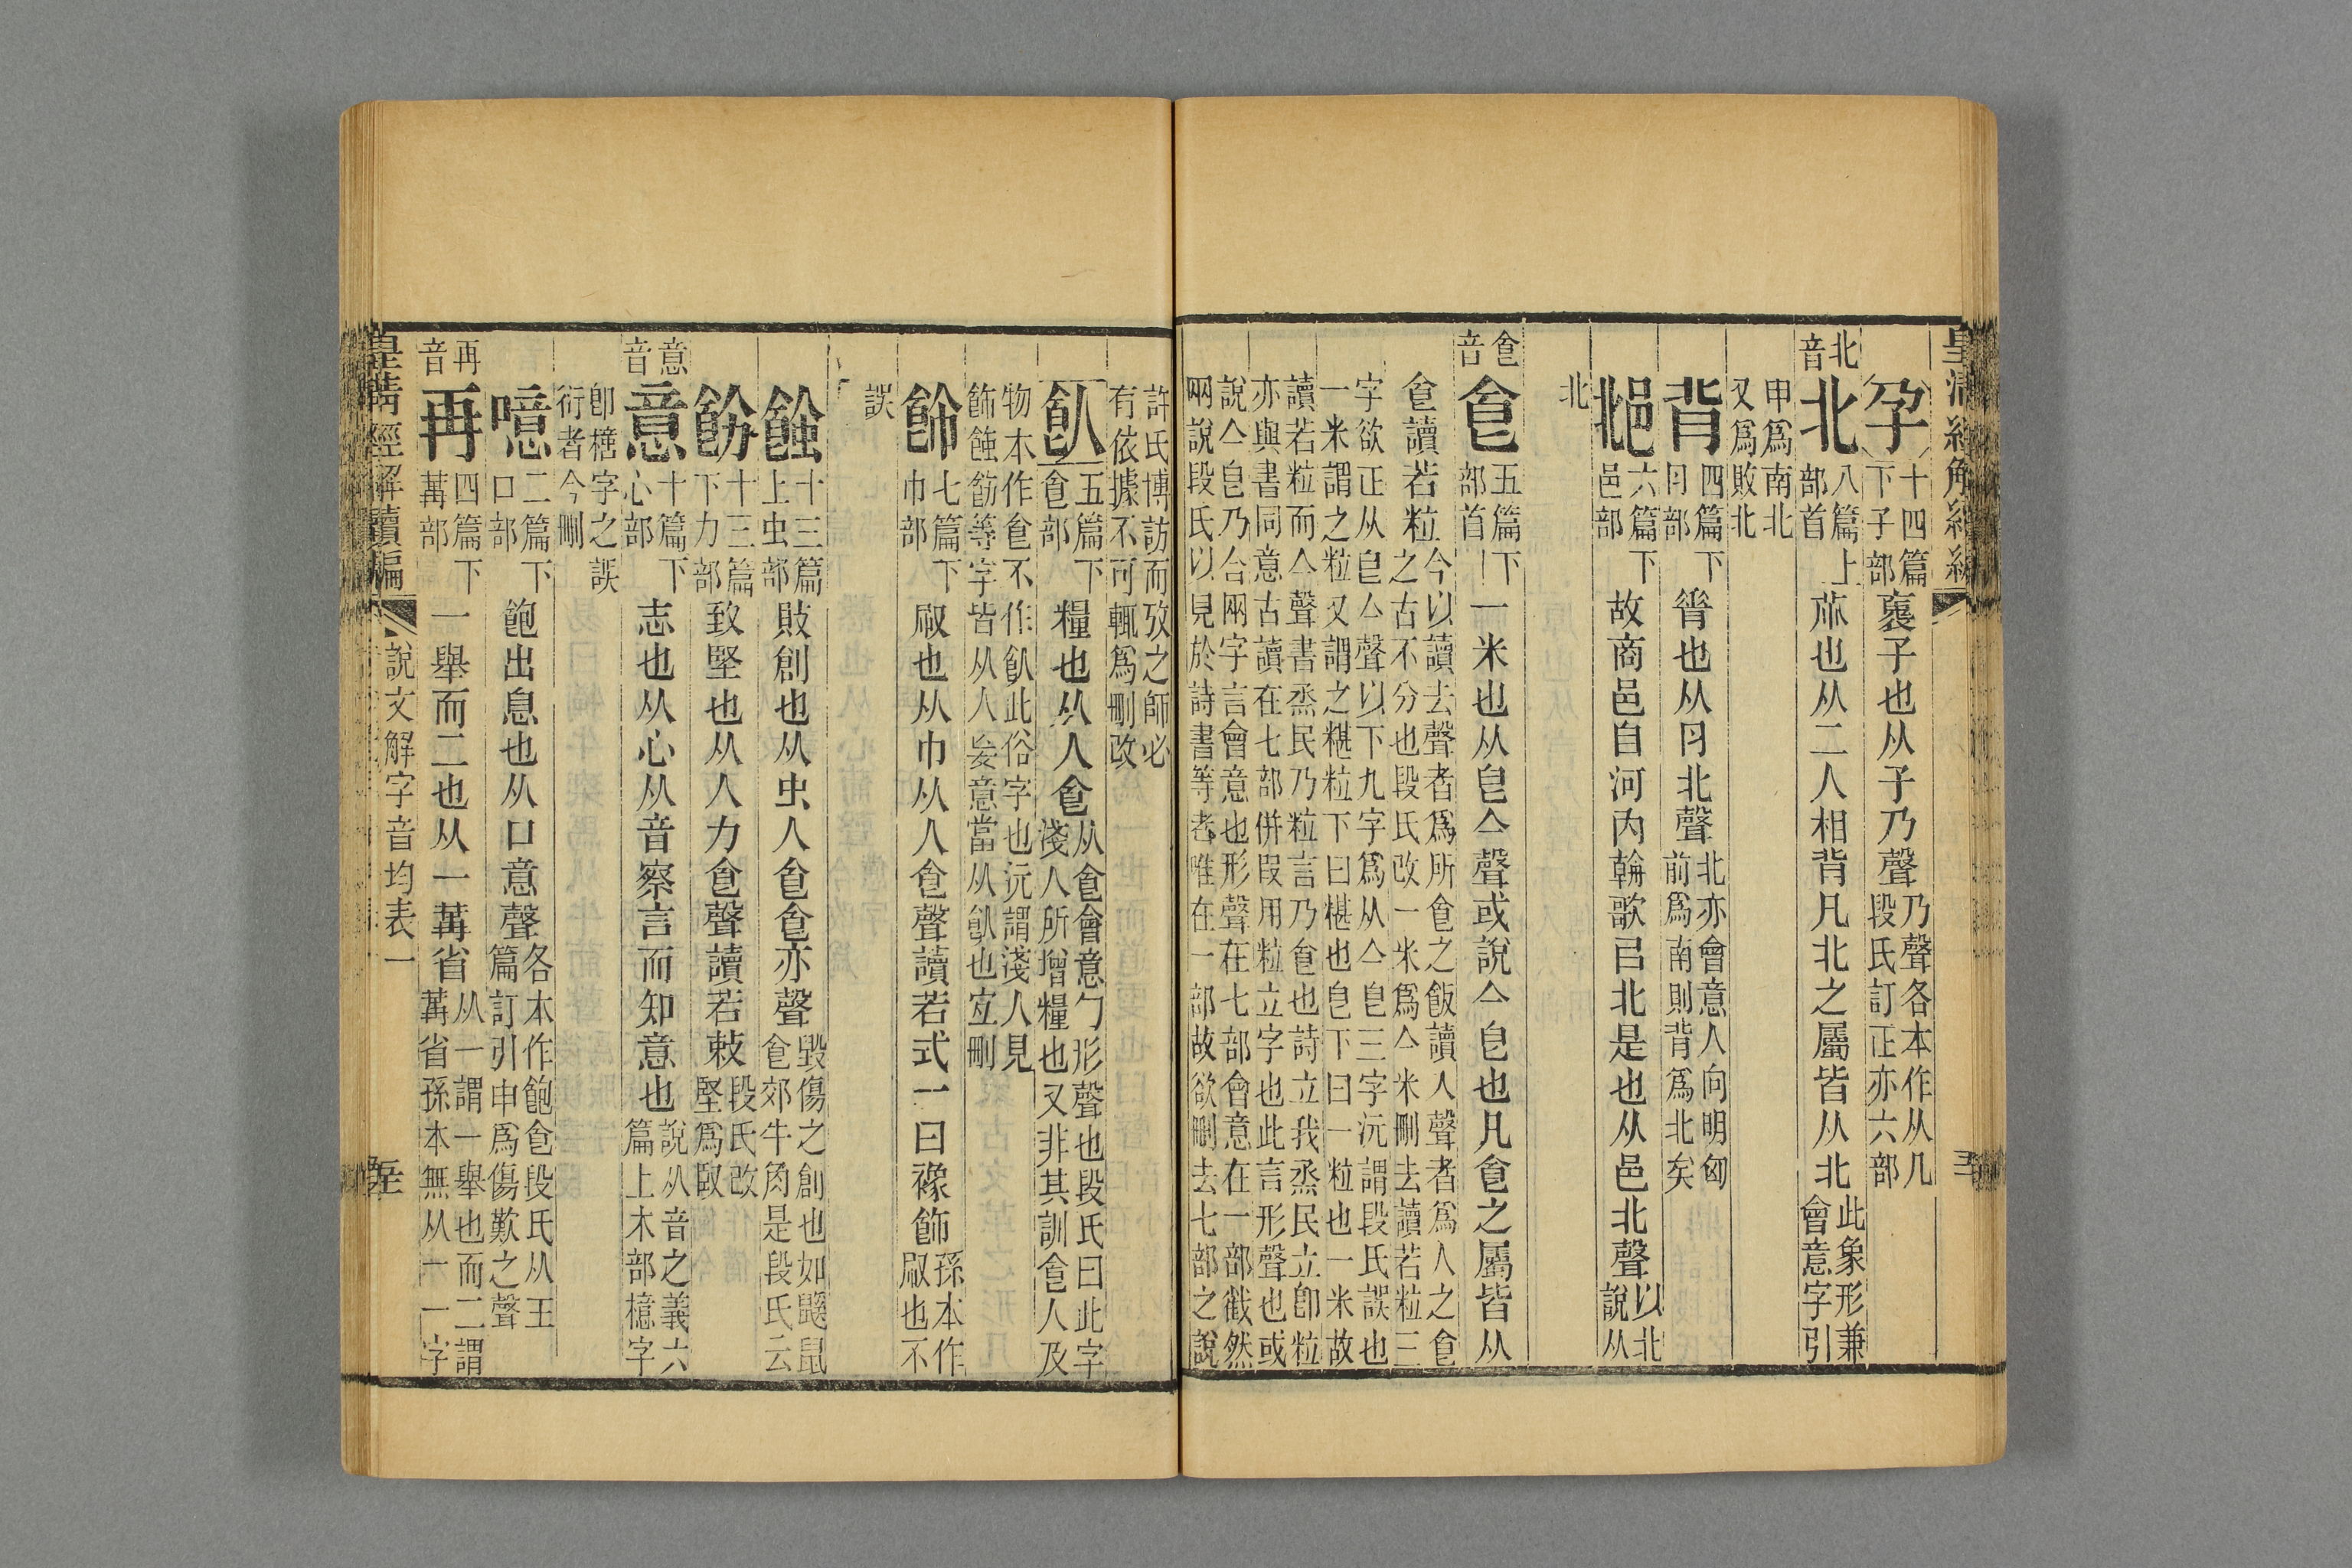 孕十四篇下子部裹子也从子乃聲乃聲各本作从几段氏訂正亦六部
北音北八篇上部首也从二人相背凡北之屬皆从北此象形兼會意字引
申爲南北又爲敗北
背四篇下肉部脊也从肉北聲北亦會意人向明匈前爲南則背爲北矣
邶六篇下邑部故商邑自河內朝歌㠯北是也从邑北聲以北說从
北
食音食五篇下部首一米也从皀亼聲或說亼皀也凡食之屬皆从
食讀若粒今以讀去聲者爲所食之飯讀人聲者爲人之食之古不分也段氏改一米爲亼米刪去讀若粒三
字欲正从皀亼聲以下九字爲从亼皀三字沅謂段氏誤也一米謂之粒又謂之糂粒下曰糂也皀下曰一粒也一米故
讀若粒而亼聲書烝民乃粒言乃食也詩立我烝民立卽粒亦與書同意古讀在七部併叚用粒立字也此言形聲也或
說亼皀乃合兩字言會意也形聲在七部會意在一部截然兩說段氏以見於詩書等者唯在一部故欲刪去七部之說
許氏博訪而攷之師必有依據不可輒爲刪改
飤五篇下食部糧也从人食从食會意勹形聲也段氏曰此字淺人所增糧也又非其訓食人及
物本作食不作飤此俗字也沅謂淺人見飾蝕飭等字皆从人妄意當从飤也宐刪
飾七篇下巾部㕞也从巾从人食聲讀若式一曰襐飾孫本作㕞也不
誤
蝕十三篇上虫部敗創也从虫人食食亦聲毀傷之創也如鼷鼠食郊牛角是段氏云
飭十三篇下力部致堅也从人力食聲讀若敕段氏改堅爲臤
意音意十篇下心部志也从心从音察言而知意也說从音之義六篇上木部檍字
卽檍字之誤衍者今刪
噫二篇下口部飽出息也从口意聲各本作飽食段氏从王篇訂引申爲傷歎之聲
再音再四篇下冓部一舉而二也从一冓省从一謂一舉也而二謂冓省孫本無从一一字
皇清經解續編
說文解字音均表一